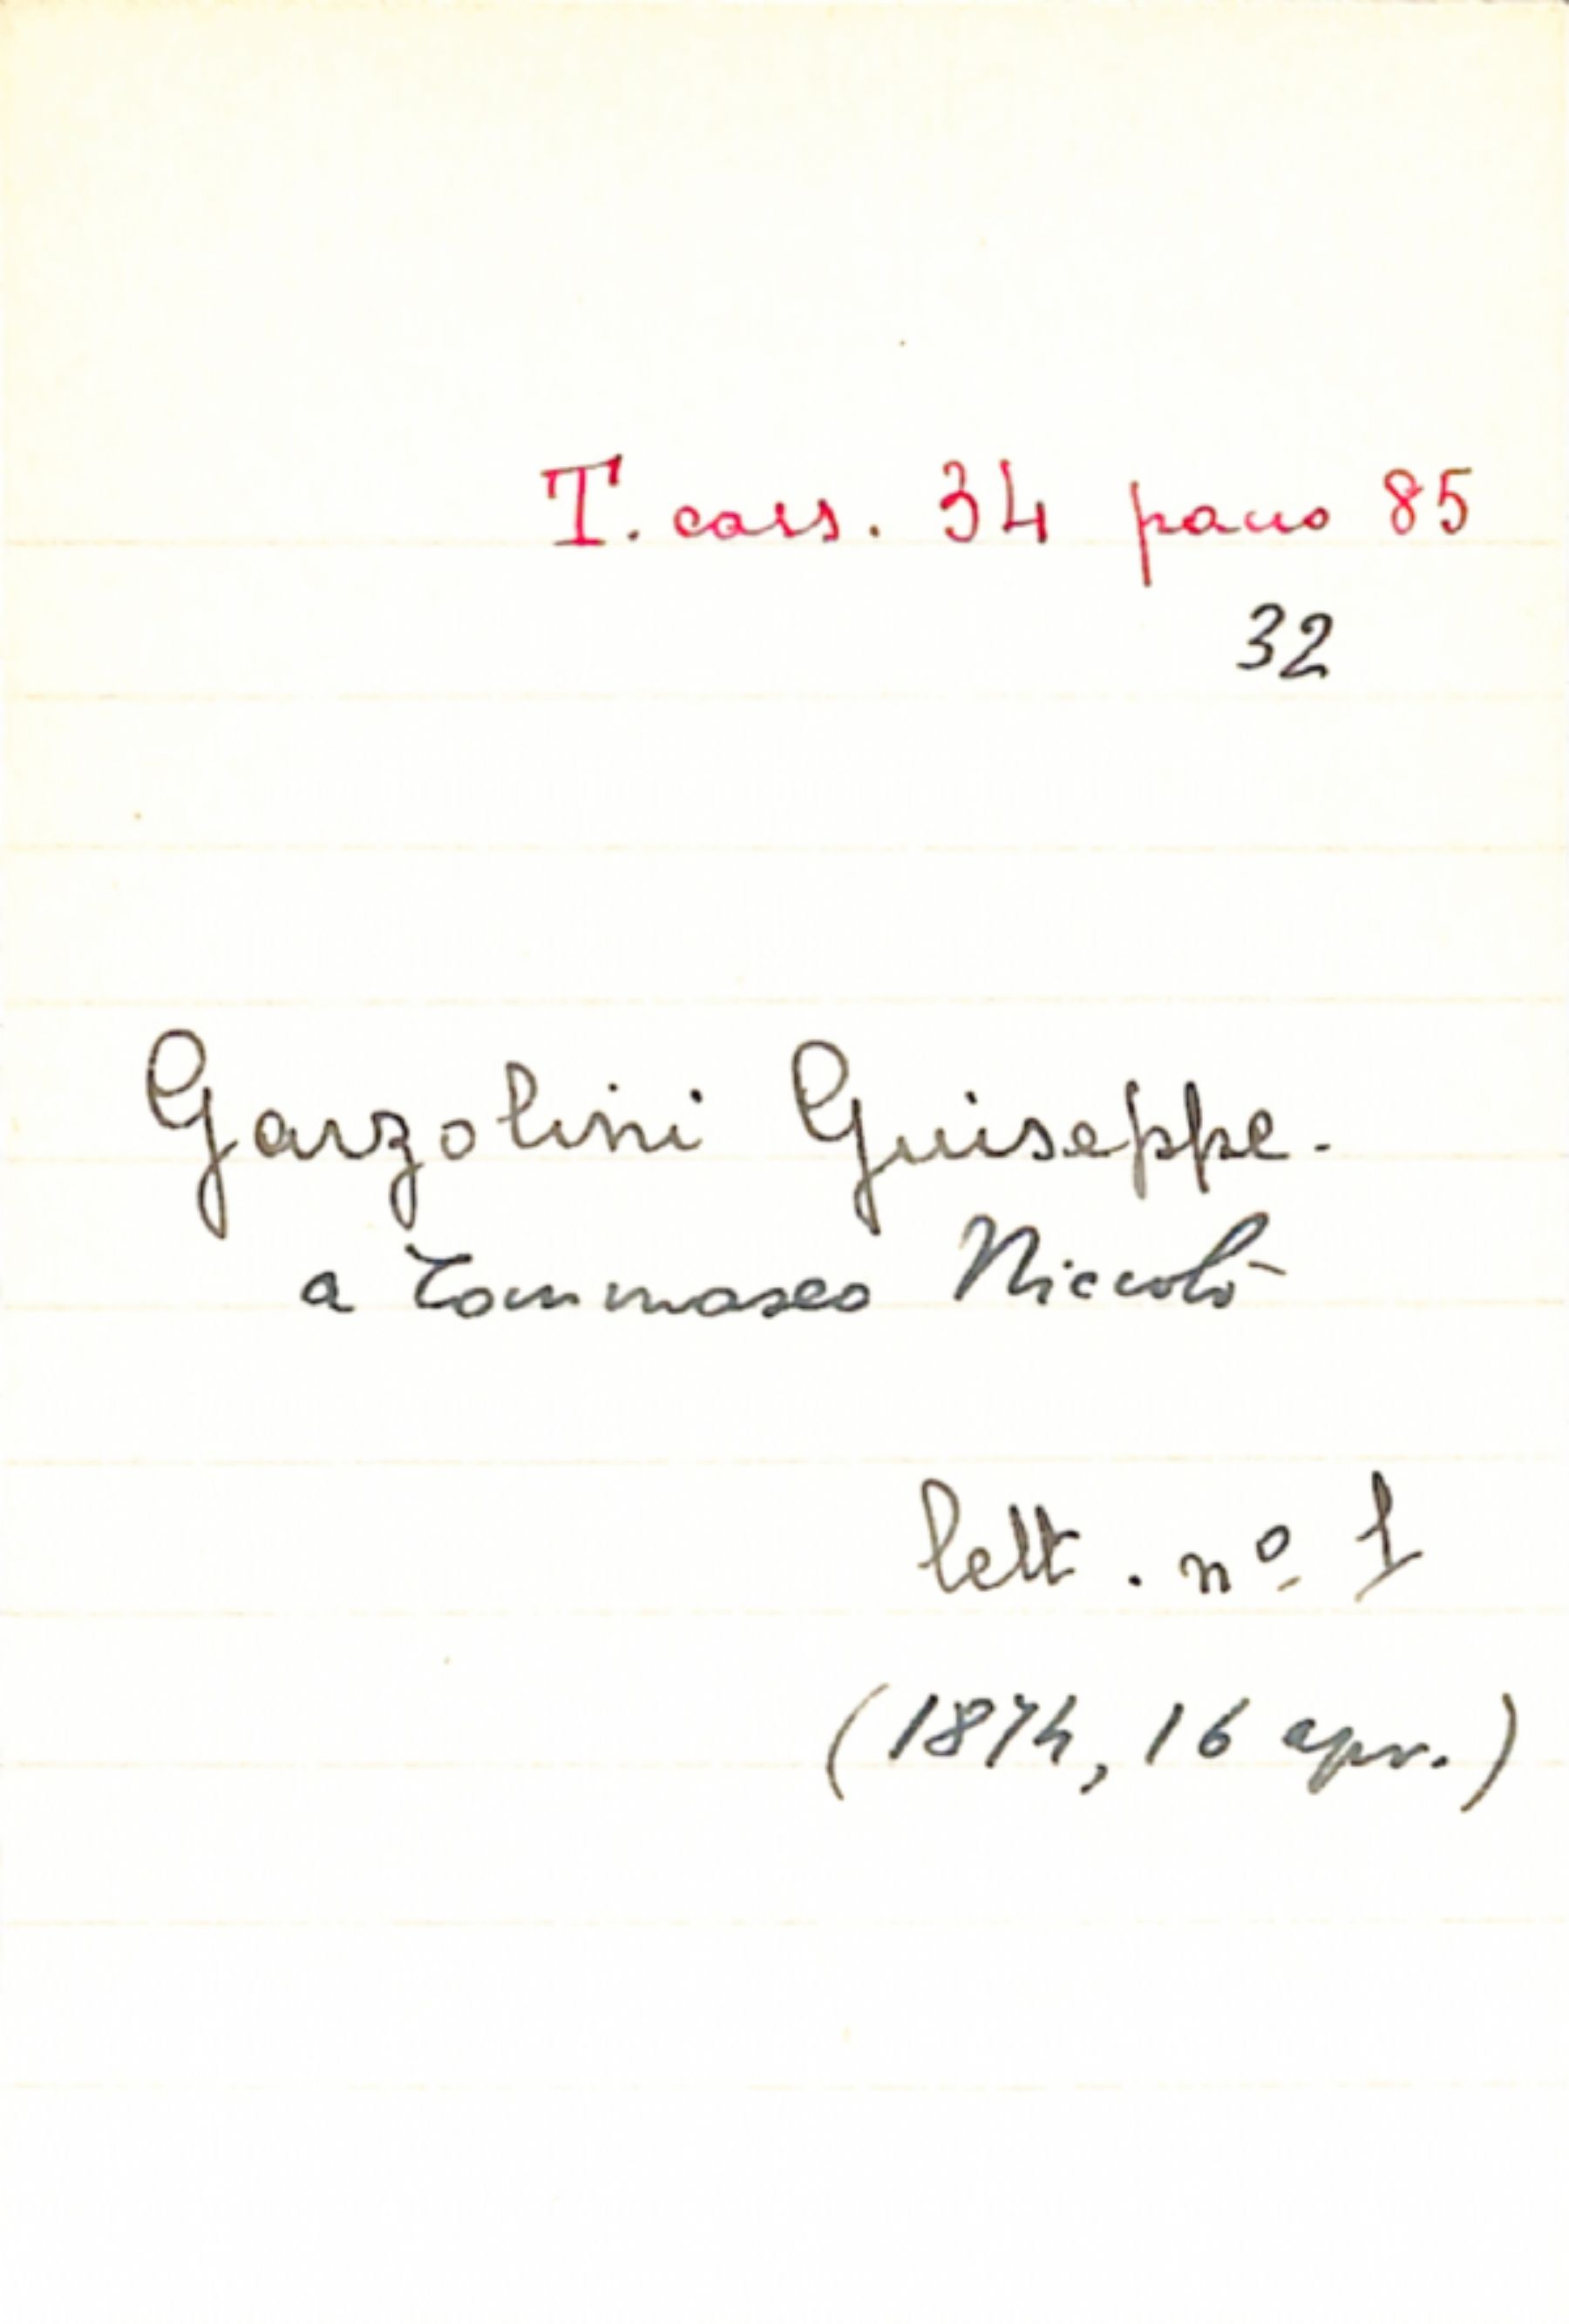 T. cass. 34 pacco 85
32
Garzolini Giuseppe.
a Tommaseo Niccolò
lett. nº 1
(1874, 16 apr.)